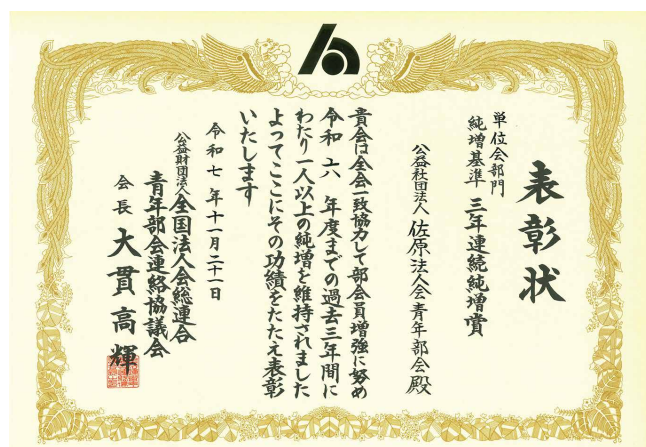 表彰状
単位会部門
純増基準 三年連続純増賞
公益社団法人 佐原法人会青年部会殿
貴会は全会一致協力して部会員増強に努め
令和 六 年度までの過去三年間に
わたり一人以上の純増を維持されました
よってここにその功績をたたえ表彰
いたします
令和七年十一月二十一日
公益財団法人全国法人会総連合
青年部会連絡協議会
会長 大貫高輝